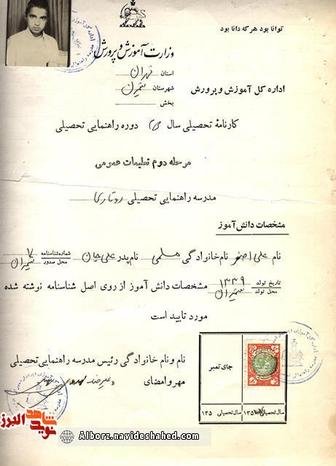 توانا بود هر که دانا بود
وزارت آموزش و پرورش
استان تهران
اداره کل آموزش و پرورش شهرستان شمیران
بخش
کارنامهٔ تحصیلی سال دوره راهنمائی تحصیلی
مرحله دوم تعلیمات عمومی
مدرسه راهنمایی تحصیلی
مشخصات دانش آموز
نام علی اصغر نام خانوادگی نام پدر علی جان شماره شناسنامه ۷ محل صدور شمیران
تاریخ تولد ۱۳۳۹ محل تولد شمیران مشخصات دانش آموز از روی اصل شناسنامه نوشته شده
مورد تایید است
نام و نام خانوادگی رئیس مدرسه راهنمایی تحصیلی
مهر و امضای
جای تمبر
سال تحصیلی ۱۳۵
سال تحصیلی ۱۳۵
نوید شاهد البرز
Alborz.navideshahed.com